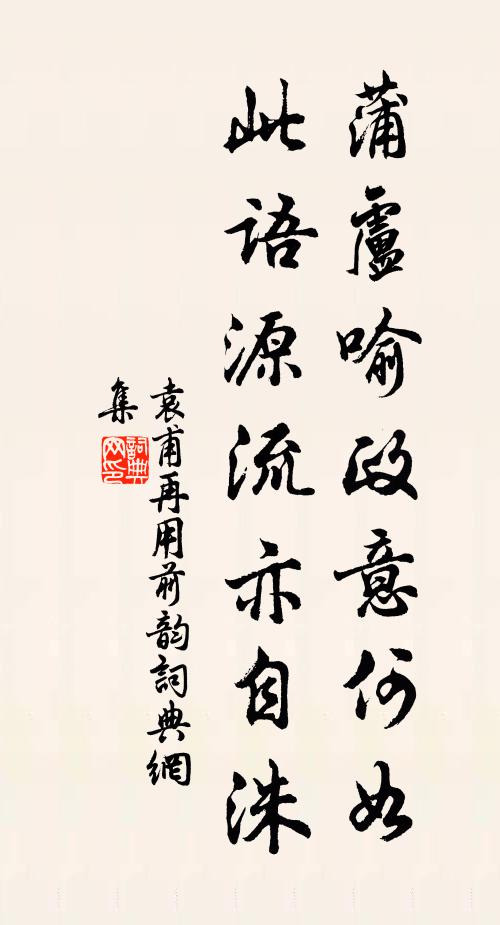 蒲盧喻政意何如
此語源流亦自洙
袁甫再用前韵詞典網
集
詞典
网印